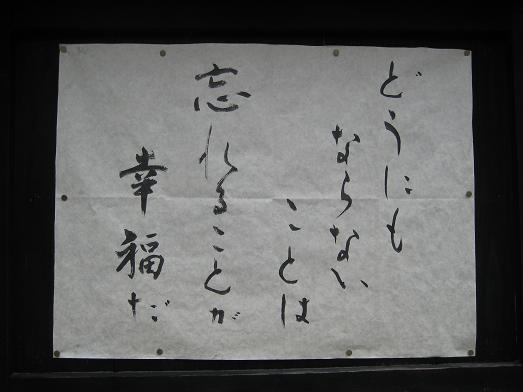 どうにも
ならない
ことは
忘れることが
幸福だ